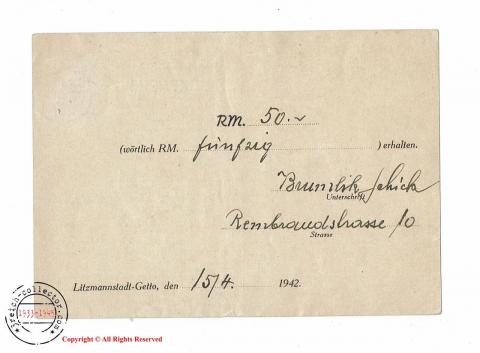 RM. 50.~
(wörtlich RM. fünfzig ) erhalten.
Brumlik Schick
Unterschrift
Rembrandstrasse 10
Strasse
Litzmannstadt-Getto, den 15/4. 1942.
*3reich-collector.com*
1933-1945
Copyright © All Rights Reserved